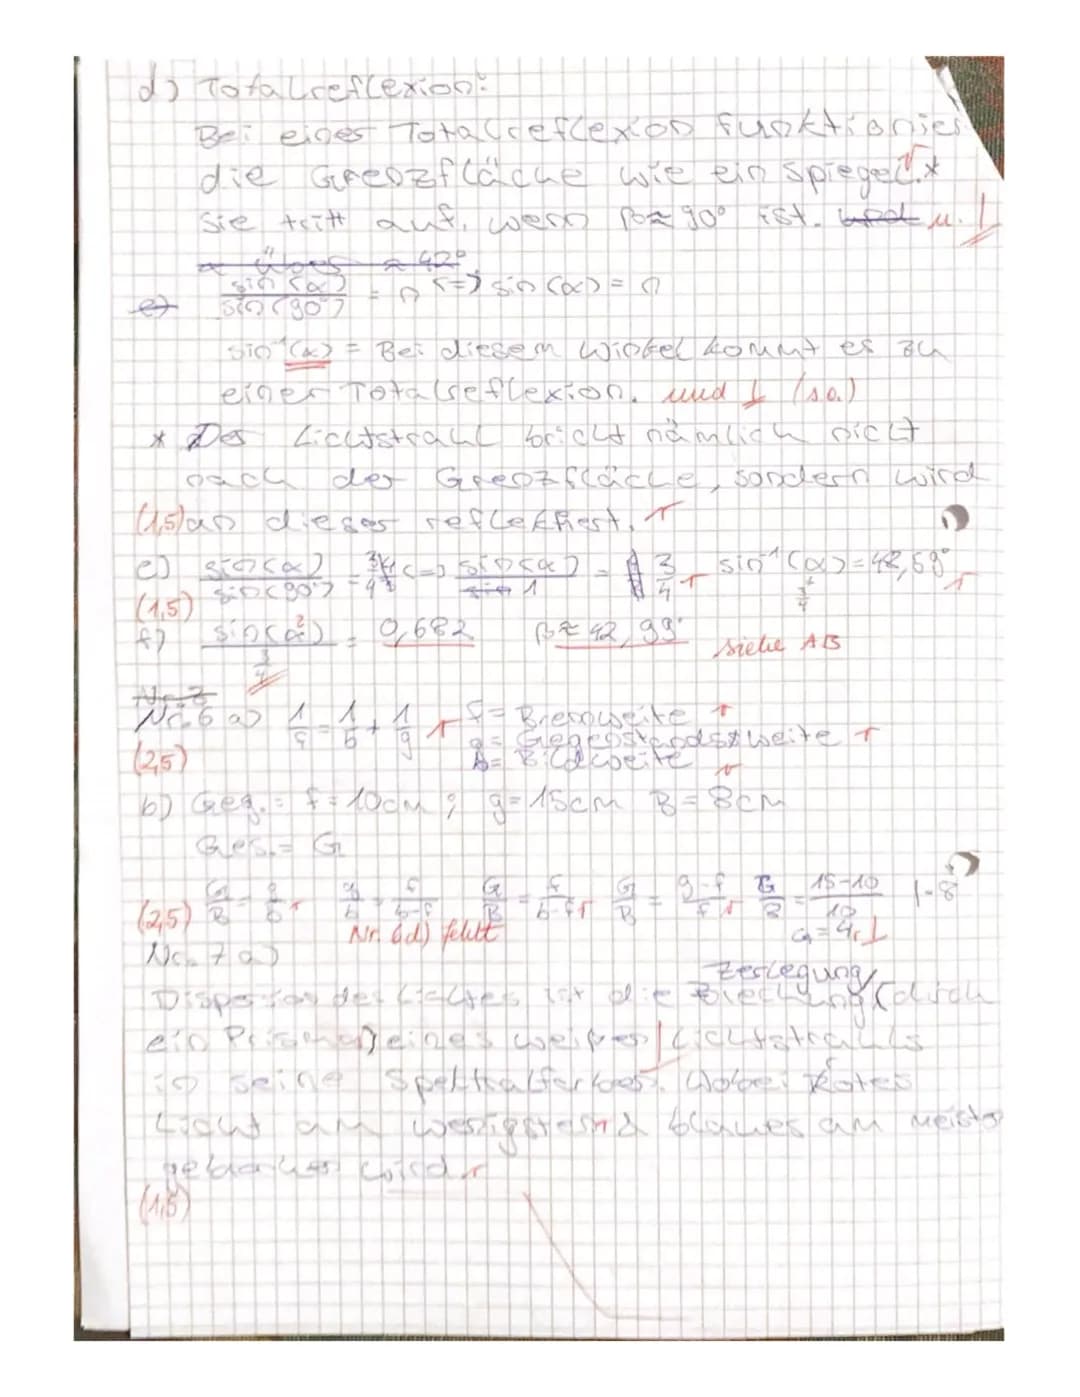 d) Totalreflexion:
Bei einer Totalreflexion funktionier
die Grenzfläche wie ein Spiegel. *
Sie tritt auf, wenn β≈90° ist. und u.
α über ≈ 42°
e) sin(α) / sin(90°) = n <=> sin(α) = n
sin⁻¹(α) = Bei diesem Winkel kommt es zu
einer Totalreflexion. und (s.o.)
* Der Lichtstrahl bricht nämlich nicht
nach der Grenzfläche, sondern wird
(1,5) an dieser reflektiert.
e) sin(α) / sin(90°) = 3/4 <=> sin(α) / 1 = 3/4 sin⁻¹(α) = 48,59°
3/4
(1,5)
f) sin(α) / 3/4 = 0,682 β≈42,99° siehe AB
Nr. 7
Nr. 6 a) 1/f = 1/b + 1/g f = Brennweite
g = Gegenstandsweite
(2,5) b = Bildweite
b) Geg.: f = 10cm ; g = 15cm B = 8cm
Ges. = G
(2,5) G/B = g/b g/b = f/b-f G/B = f/b-f G/B = g-f/f G/8 = 15-10/10 |·8
G = 4
Nr. 6d) fehlt
Nr. 7 a)
Zerlegung
Dispersion des Lichtes ist die Brechung (durch
ein Prisma) eines weißen Lichtstrahls
in seine Spektralfarben. Wobei Rotes
Licht am wenigsten & blaues am meisten
gebrochen wird.
(1,5)